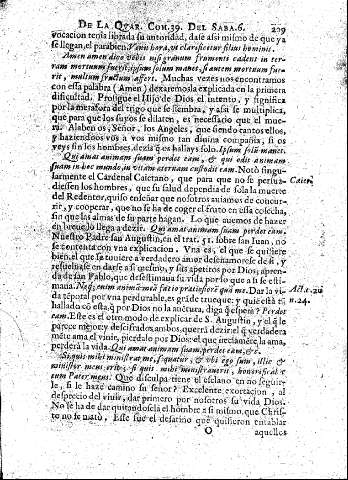 DE LA QVAR. COM. 39. DEL SABA. 6. 209
vocacion tenia librada su autoridad, dase assi mismo de que ya
se llegan, el parabien Venit hora, vt clarificetur filius hominis.
Amen amen dico vobis nisi granum frumenti cadens in ter-
ram mortuum fuerit, ipsum solum manet, si autem mortuum fue-
rit, multum fructum affert. Muchas vezes nos encontramos
con essa palabra (Amen) dexaremosla explicada en la primera
dificultad. Prosigue el Hijo de Dios el intento, y significa
por la metafora del trigo que se siembra, y assi se multiplica,
que para que los suyos se dilaten, es necessario que el mue-
ra. Alaben os, Señor, los Angeles, que siendo cantos ellos,
y haziendoos vos à vos mismo tan diuina compañia, si os
veys sin los hombres, dezis q̃ os hallays solo. Ipsum solũ manet.
Qui amat animam suam perdet eam, & qui odit animam
suam in hoc mundo, in vitam æternam custodit eam. Notò singu-
larmente el Cardenal Caietano, que para que no se persua-
diessen los hombres, que su salud dependia de sola la muerte
del Redentor, quiso enseñar que nosotros auiamos de concur-
rir, y cooperar, que no se ha de coger el fruto en essa colecha,
sin que las almas de su parte hagan. Lo que auemos de hazer
en breue lo llega a dezir. Qui amat animam suam perdet eam.
Caieta.
Nuestro Padre san Augustin, en el trat. 51. sobre san Iuan, no
se contenta con vna explicacion. Vna es, el que se quisiere
bien, el que se tuuiere a verdadero amor desenamorese de si, y
resueluase en darse a si questo, y sus apetitos por Dios; apren-
da de san Pablo, que desestimaua su vida por lo que a si se esti-
maua. Neq; enim animã meã facio pratiosiorẽ quã me. Dar la vi-
da tẽporal por vna perdurable, es grãde trueque: y quiẽ està tã
hallado cõ esta, q̃ por Dios no la auẽtura, diga q̃ espera? Perdet
eam.
Act. c. 20
n. 24.
Este es el otro modo de explicar de S. Augustin, y el q̃ le
parece mejor: y descifrados ambos, querrà dezir: el q̃ verdadera
mẽte ama el viuir, pierdalo por Dios: el que inciertamẽte la ama,
perderà la vida. Qui amat animam suam, perdet eam, &c.
Siquis mihi ministrat me, sequatur, & vbi ego sum, illic &
minister meus erit; & si quis mihi ministrauerit, honorificabit
eum Pater meus. Que disculpa tiene el esclauo en no seguir-
le, si le haze camino su señor? Excelente exortacion, al
desprecio del viuir, dar primero por nosotros su vida Dios.
No se ha de dar quitandosela el hombre a si mismo, que Chris-
to no se matò. Esse fue el desatino que quisieron entablar
O aquellos